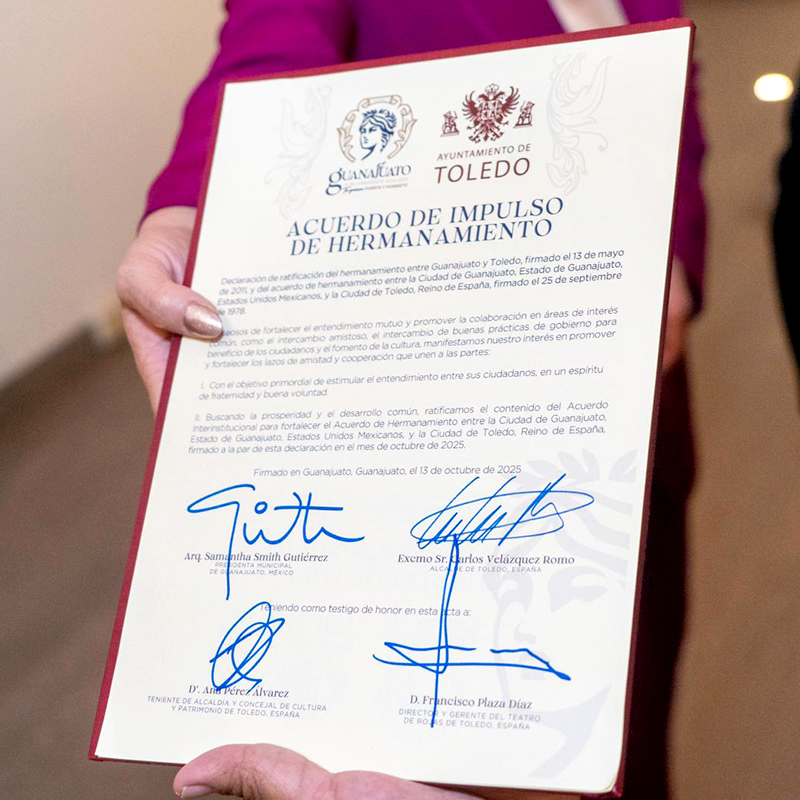 GUANAJUATO
AYUNTAMIENTO DE
TOLEDO
ACUERDO DE IMPULSO
DE HERMANAMIENTO
Declaración de ratificación del hermanamiento entre Guanajuato y Toledo, firmado el 13 de mayo
de 2011, y del acuerdo de hermanamiento entre la Ciudad de Guanajuato, Estado de Guanajuato,
Estados Unidos Mexicanos, y la Ciudad de Toledo, Reino de España, firmado el 25 de septiembre
de 1978.
seosos de fortalecer el entendimiento mutuo y promover la colaboración en áreas de interés
común, como el intercambio amistoso, el intercambio de buenas prácticas de gobierno para
beneficio de los ciudadanos y el fomento de la cultura, manifestamos nuestro interés en promover
y fortalecer los lazos de amistad y cooperación que unen a las partes:
I. Con el objetivo primordial de estimular el entendimiento entre sus ciudadanos, en un espíritu
de fraternidad y buena voluntad.
II. Buscando la prosperidad y el desarrollo común, ratificamos el contenido del Acuerdo
interinstitucional para fortalecer el Acuerdo de Hermanamiento entre la Ciudad de Guanajuato,
Estado de Guanajuato, Estados Unidos Mexicanos, y la Ciudad de Toledo, Reino de España,
firmado a la par de esta declaración en el mes de octubre de 2025.
Firmado en Guanajuato, Guanajuato, el 13 de octubre de 2025
Arq. Samantha Smith Gutiérrez
PRESIDENTA MUNICIPAL
DE GUANAJUATO, MÉXICO
Excmo Sr. Carlos Velázquez Romo
ALCALDE DE TOLEDO, ESPAÑA
Teniendo como testigo de honor en esta acta a:
Dª. Ana Pérez Álvarez
TENIENTE DE ALCALDÍA Y CONCEJAL DE CULTURA
Y PATRIMONIO DE TOLEDO, ESPAÑA
D. Francisco Plaza Díaz
DIRECTOR Y GERENTE DEL TEATRO
DE ROJAS DE TOLEDO, ESPAÑA